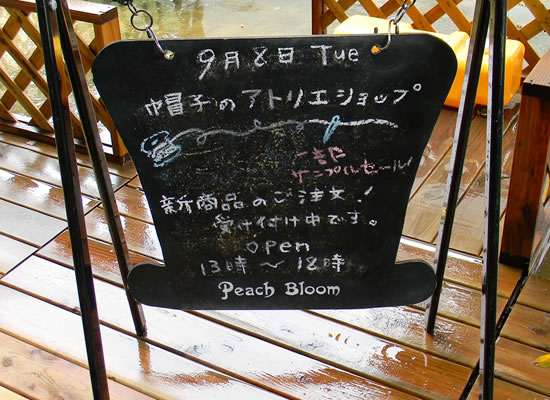 9月8日 Tue
帽子のアトリエショップ
一部
サンプルセール!
新商品のご注文!
受け付け中です。
open
13時〜18時
Peach Bloom